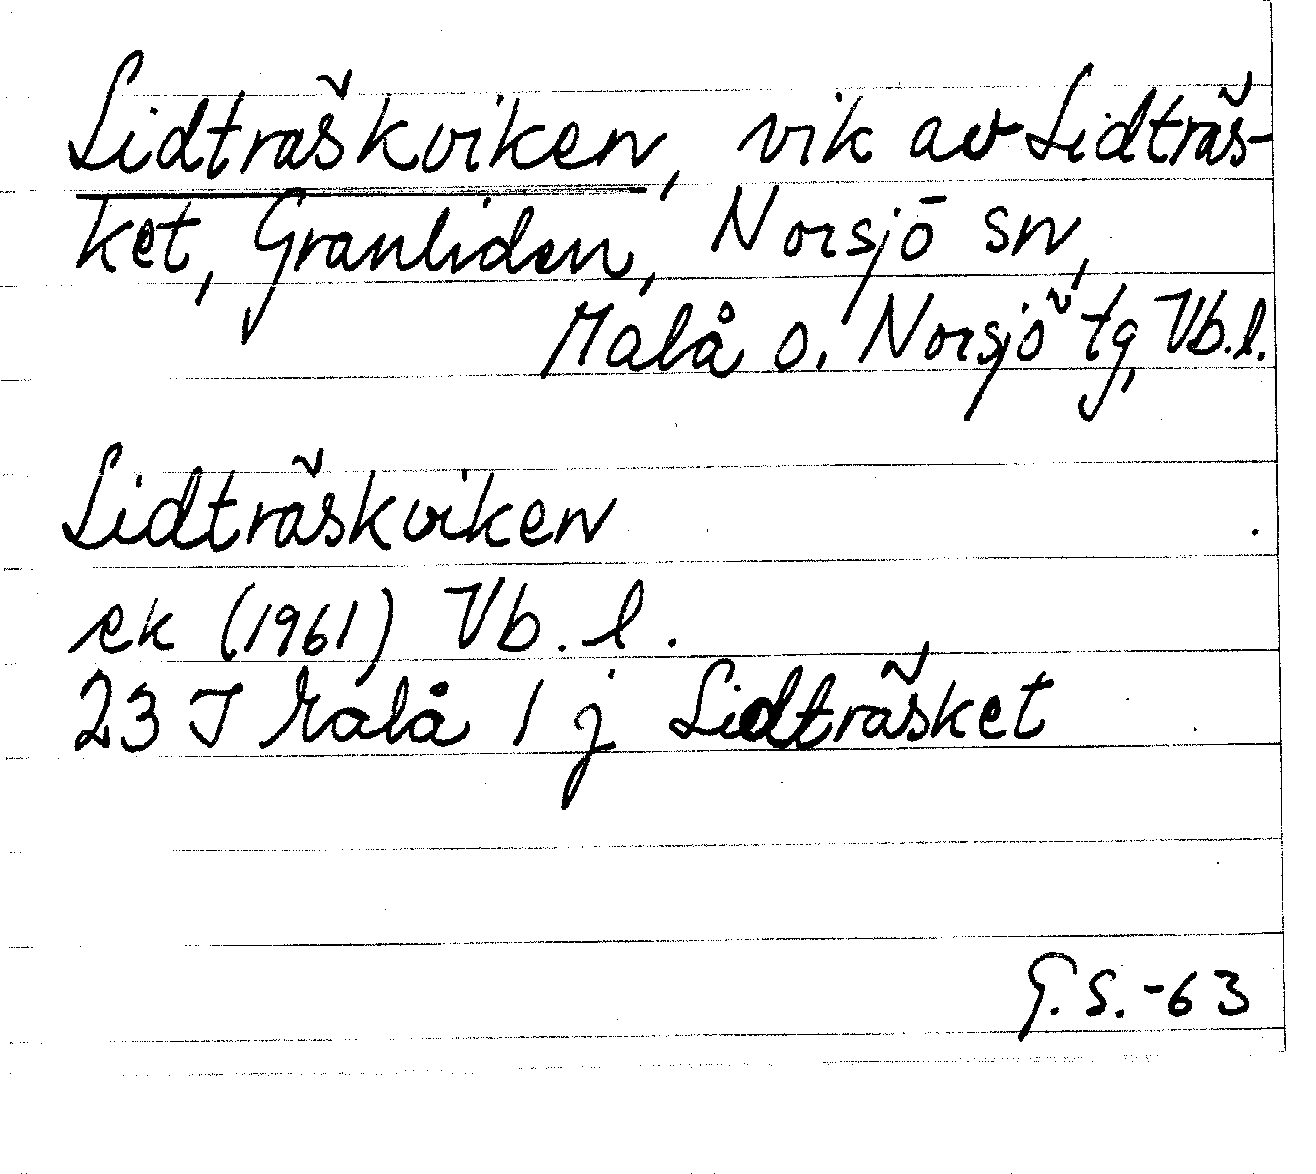 Lidträskviken, vik av Lidträs-
ket, Granliden, Norsjö sn,
Malå o. Norsjö tg, Vb.l.
Lidträskviken
ek (1961) Vb. l.
23 J Malå 1 j Lidträsket
G.S.-63